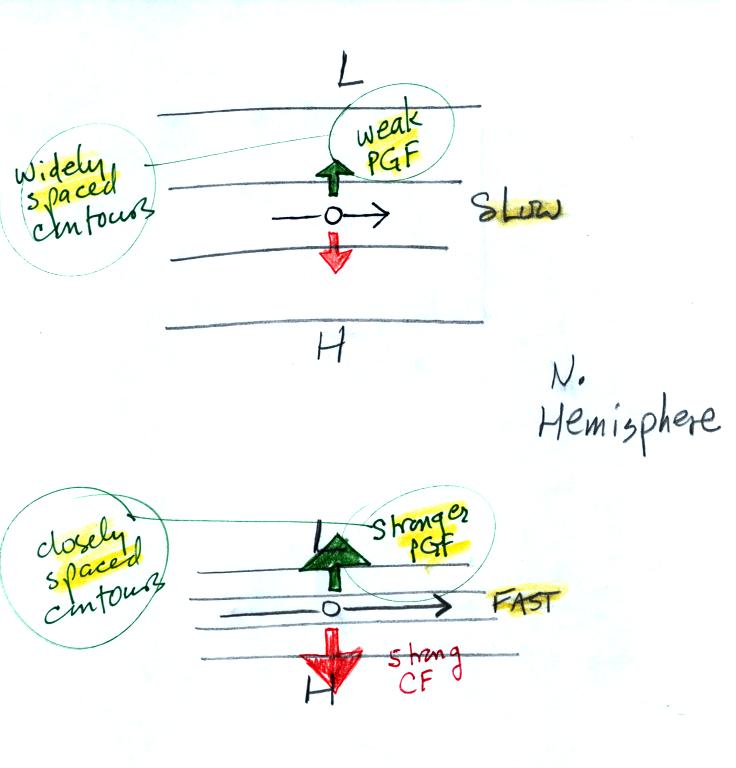 L
weak
PGF
widely
spaced
contours
SLOW
H
N.
Hemisphere
closely
spaced
contours
L
stronger
PGF
FAST
strong
CF
H